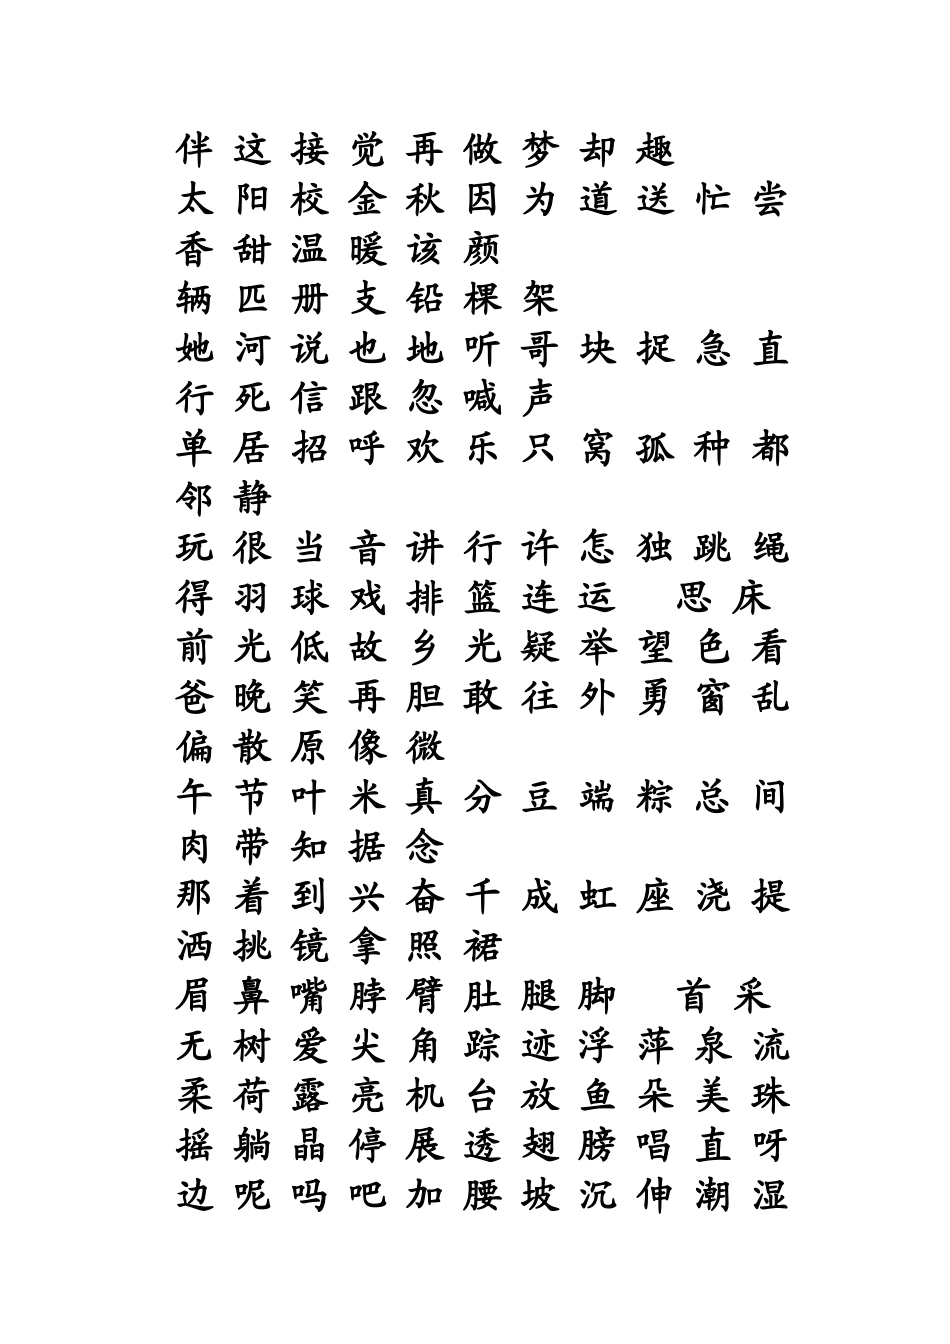 伴 这 接 觉 再 做 梦 却 趣
太 阳 校 金 秋 因 为 道 送 忙 尝
香 甜 温 暖 该 颜
辆 匹 册 支 铅 棵 架
她 河 说 也 地 听 哥 块 捉 急 直
行 死 信 跟 忽 喊 声
单 居 招 呼 欢 乐 只 窝 孤 种 都
邻 静
玩 很 当 音 讲 行 许 怎 独 跳 绳
得 羽 球 戏 排 篮 连 运 思 床
前 光 低 故 乡 光 疑 举 望 色 看
爸 晚 笑 再 胆 敢 往 外 勇 窗 乱
偏 散 原 像 微
午 节 叶 米 真 分 豆 端 粽 总 间
肉 带 知 据 念
那 着 到 兴 奋 千 成 虹 座 浇 提
洒 挑 镜 拿 照 裙
眉 鼻 嘴 脖 臂 肚 腿 脚 首 采
无 树 爱 尖 角 踪 迹 浮 萍 泉 流
柔 荷 露 亮 机 台 放 鱼 朵 美 珠
摇 躺 晶 停 展 透 翅 膀 唱 直 呀
边 呢 吗 吧 加 腰 坡 沉 伸 潮 湿